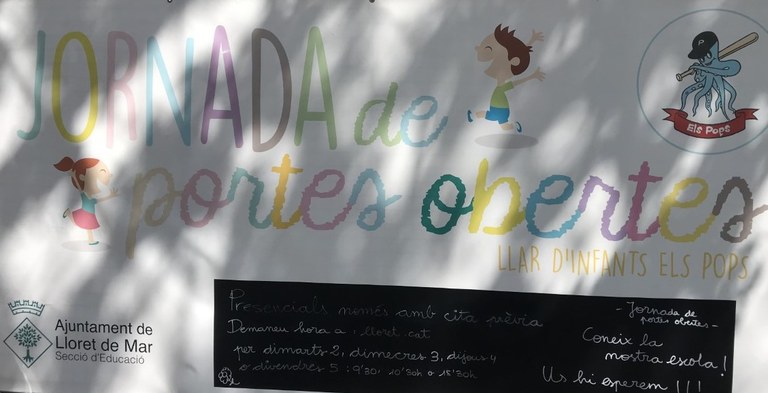 JORNADA de
portes obertes
LLAR D'INFANTS ELS POPS
Els Pops
Ajuntament de
Lloret de Mar
Secció d'Educació
Presencials només amb cita prèvia
Demaneu hora a lloret.cat
per dimarts 2, dimecres 3, dijous 4
o divendres 5 : 9'30, 10'30h o 15'30h
- Jornada de
portes obertes -
Coneix la
nostra escola!
Us hi esperem !!!